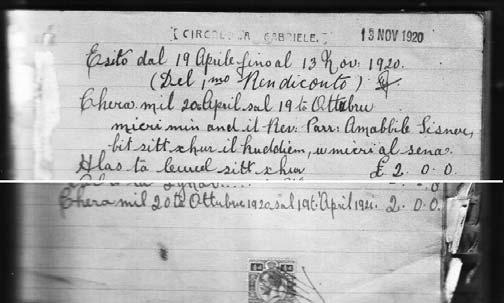 [CIRCOLO S. GABRIELE.] 13 NOV 1920
Esito dal 19 Aprile fino al 13 Nov. 1920.
(Del 1mo Rendiconto)
Chera mil 20 ta April sal 19 ta Ottubru
micri min and il Rev. Parr. Amabbile Sisner,
bit sitt xhur il huddiem, u micri għal sena.
Hlas ta leuuel sitt xhur £ 2. 0. 0.
Chera mil 20 ta Ottubru 1920 sal 19 t. April 1921. 2. 0. 0
½d